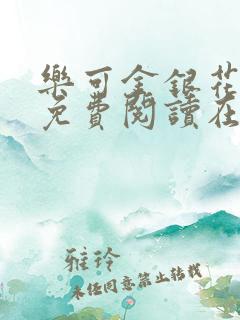 樂可金銀花
免費閱讀在
雅玲
未經同意禁止轉載